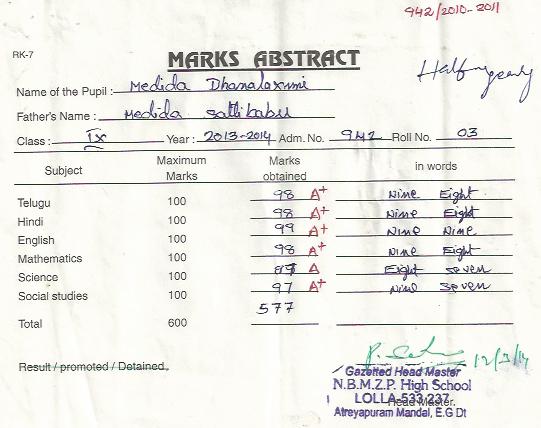 942/2010-2011
RK-7
MARKS ABSTRACT
Half yearly
Name of the Pupil : Medida Dhanalaxmi
Father's Name : Medida Sattibabu
Class : IX Year : 2013-2014 Adm. No. 942 Roll No. 03
Subject Maximum Marks Marks obtained in words
Telugu 100 98 A+ Nine Eight
Hindi 100 98 A+ Nine Eight
English 100 99 A+ Nine Nine
Mathematics 100 98 A+ Nine Eight
Science 100 87 A Eight Seven
Social studies 100 97 A+ Nine Seven
Total 600 577
12/3/14
Result / promoted / Detained.
Gazetted Head Master
N.B.M.Z.P. High School
LOLLA-533 237
Head Master.
Atreyapuram Mandal, E.G Dt